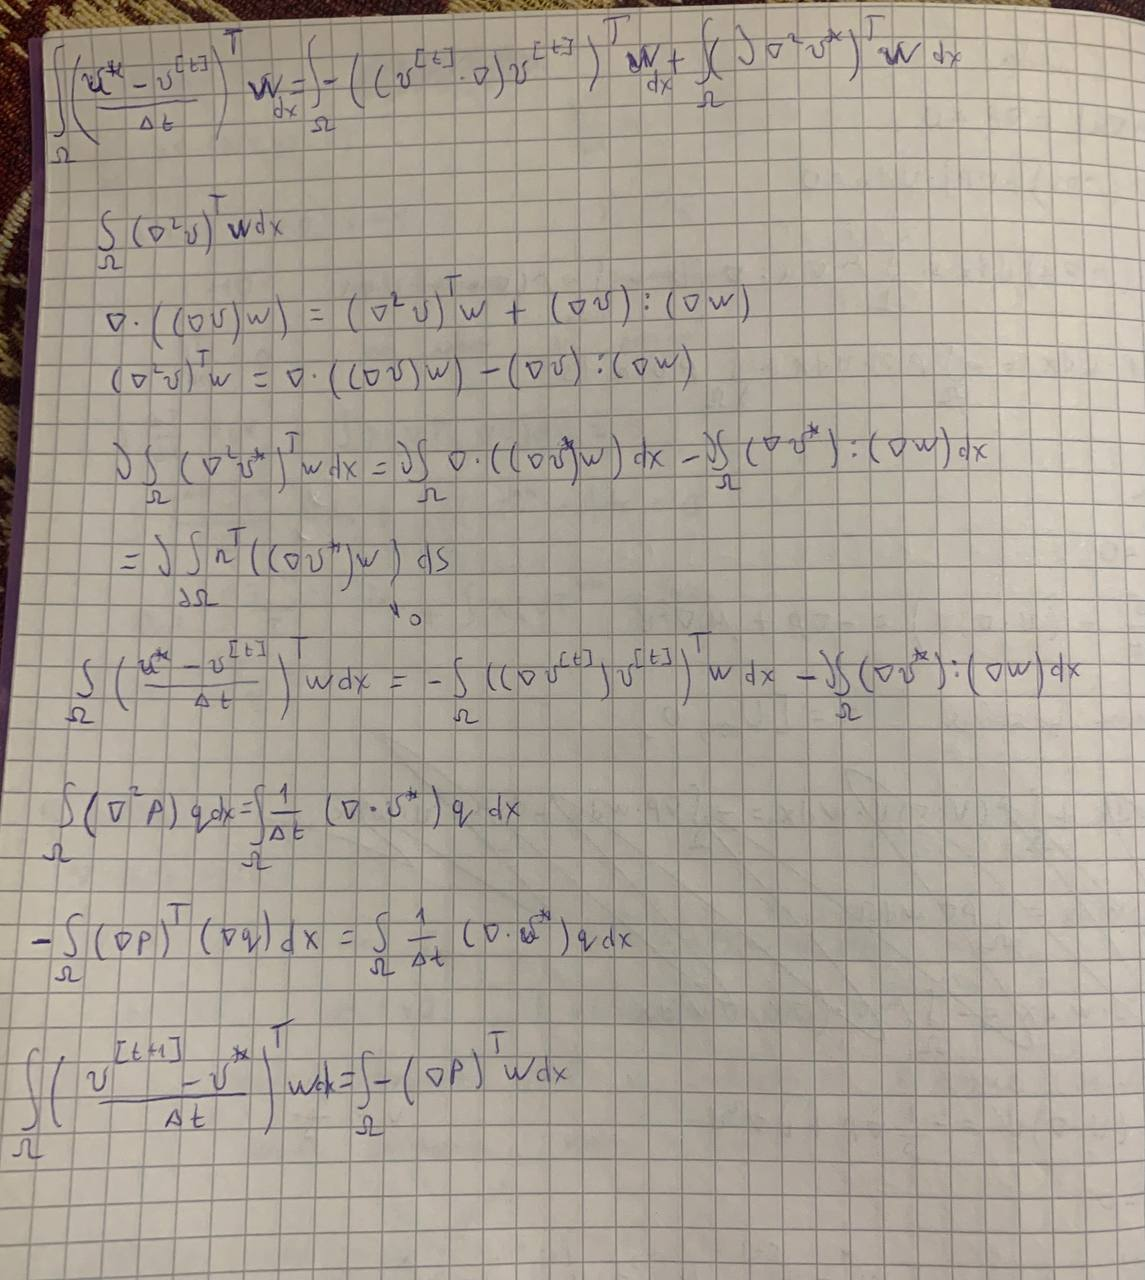 ∫_Ω ((v* − v^[t])/Δt)^T w dx = ∫_Ω −((v^[t]·∇)v^[t])^T w dx + ∫_Ω (ν∇²v*)^T w dx
∫_Ω (∇²v)^T w dx
∇·((∇v)w) = (∇²v)^T w + (∇v):(∇w)
(∇²v)^T w = ∇·((∇v)w) − (∇v):(∇w)
ν∫_Ω (∇²v*)^T w dx = ν∫_Ω ∇·((∇v*)w) dx − ν∫_Ω (∇v*):(∇w) dx
= ν∫_∂Ω n^T((∇v*)w) ds
0
∫_Ω ((v* − v^[t])/Δt)^T w dx = −∫_Ω ((∇v^[t])v^[t])^T w dx − ν∫_Ω (∇v*):(∇w) dx
∫_Ω (∇²p) q dx = ∫_Ω 1/Δt (∇·v*) q dx
−∫_Ω (∇p)^T (∇q) dx = ∫_Ω 1/Δt (∇·v*) q dx
∫_Ω ((v^[t+1] − v*)/Δt)^T w dx = ∫_Ω −(∇p)^T w dx